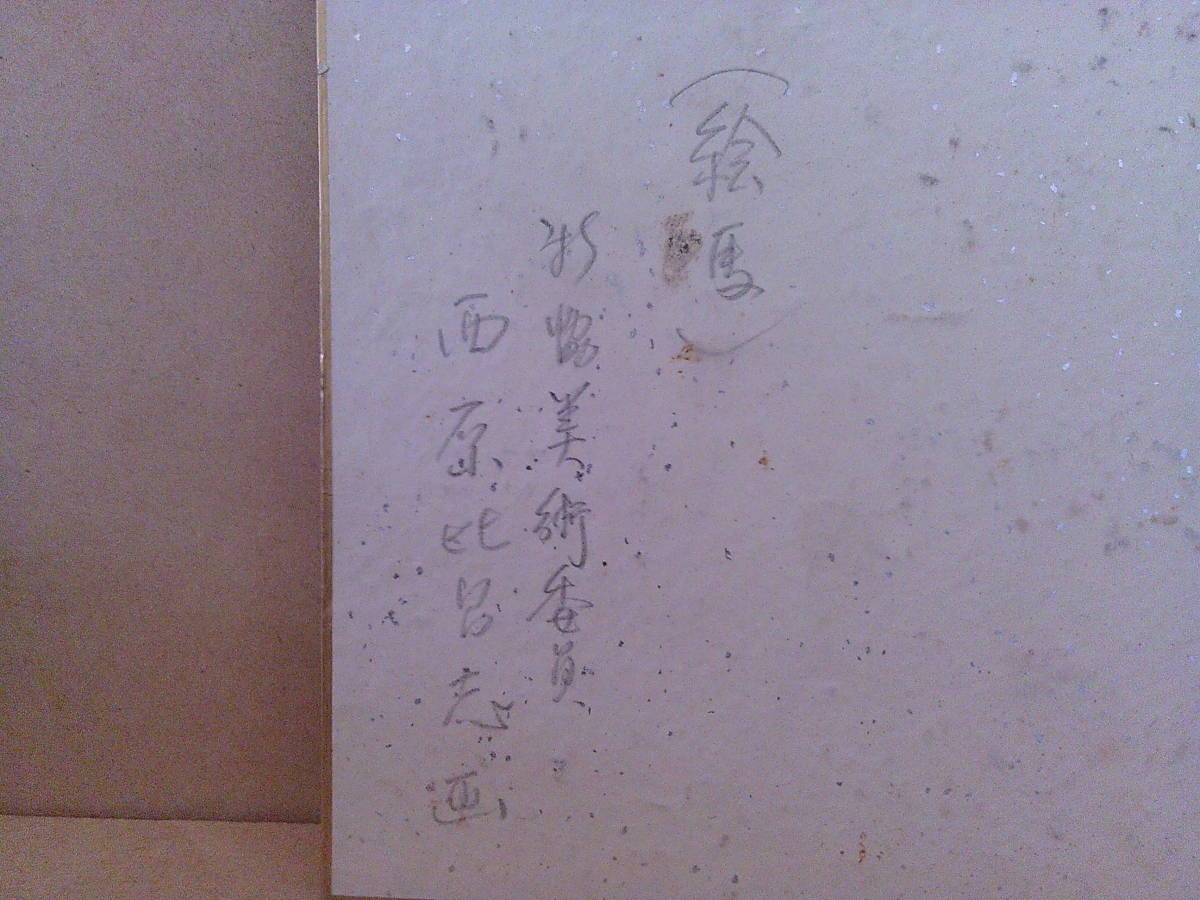 (絵馬)
新協美術委員
西原比呂志画